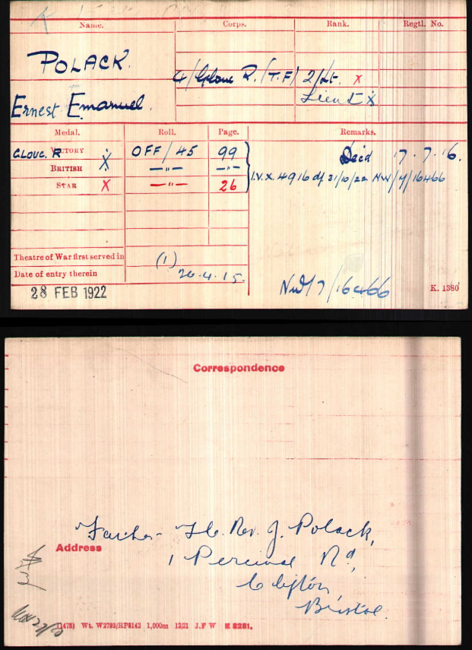 Name. Corps. Rank. Regtl. No.
POLACK. 4/Glouc R. (T.F) 2/Lt. x
Ernest Emanuel. Lieut x
Medal. Roll. Page. Remarks.
GLOUC. R VICTORY X OFF/45 99 Died 17-7-16.
BRITISH X —"— —"— I.V.X. 4916 d/31/10/22 NW/7/16466
STAR X —"— 26
Theatre of War first served in (1)
Date of entry therein 26.4.15.
28 FEB 1922 NW/7/16466 K. 1380
Correspondence
Father - The Rev. J. Polack,
Address
1 Percival Rd,
Clifton,
Bristol.
Wt. W2793/RP5143 1,000m 12/21 J.F W E 8281.